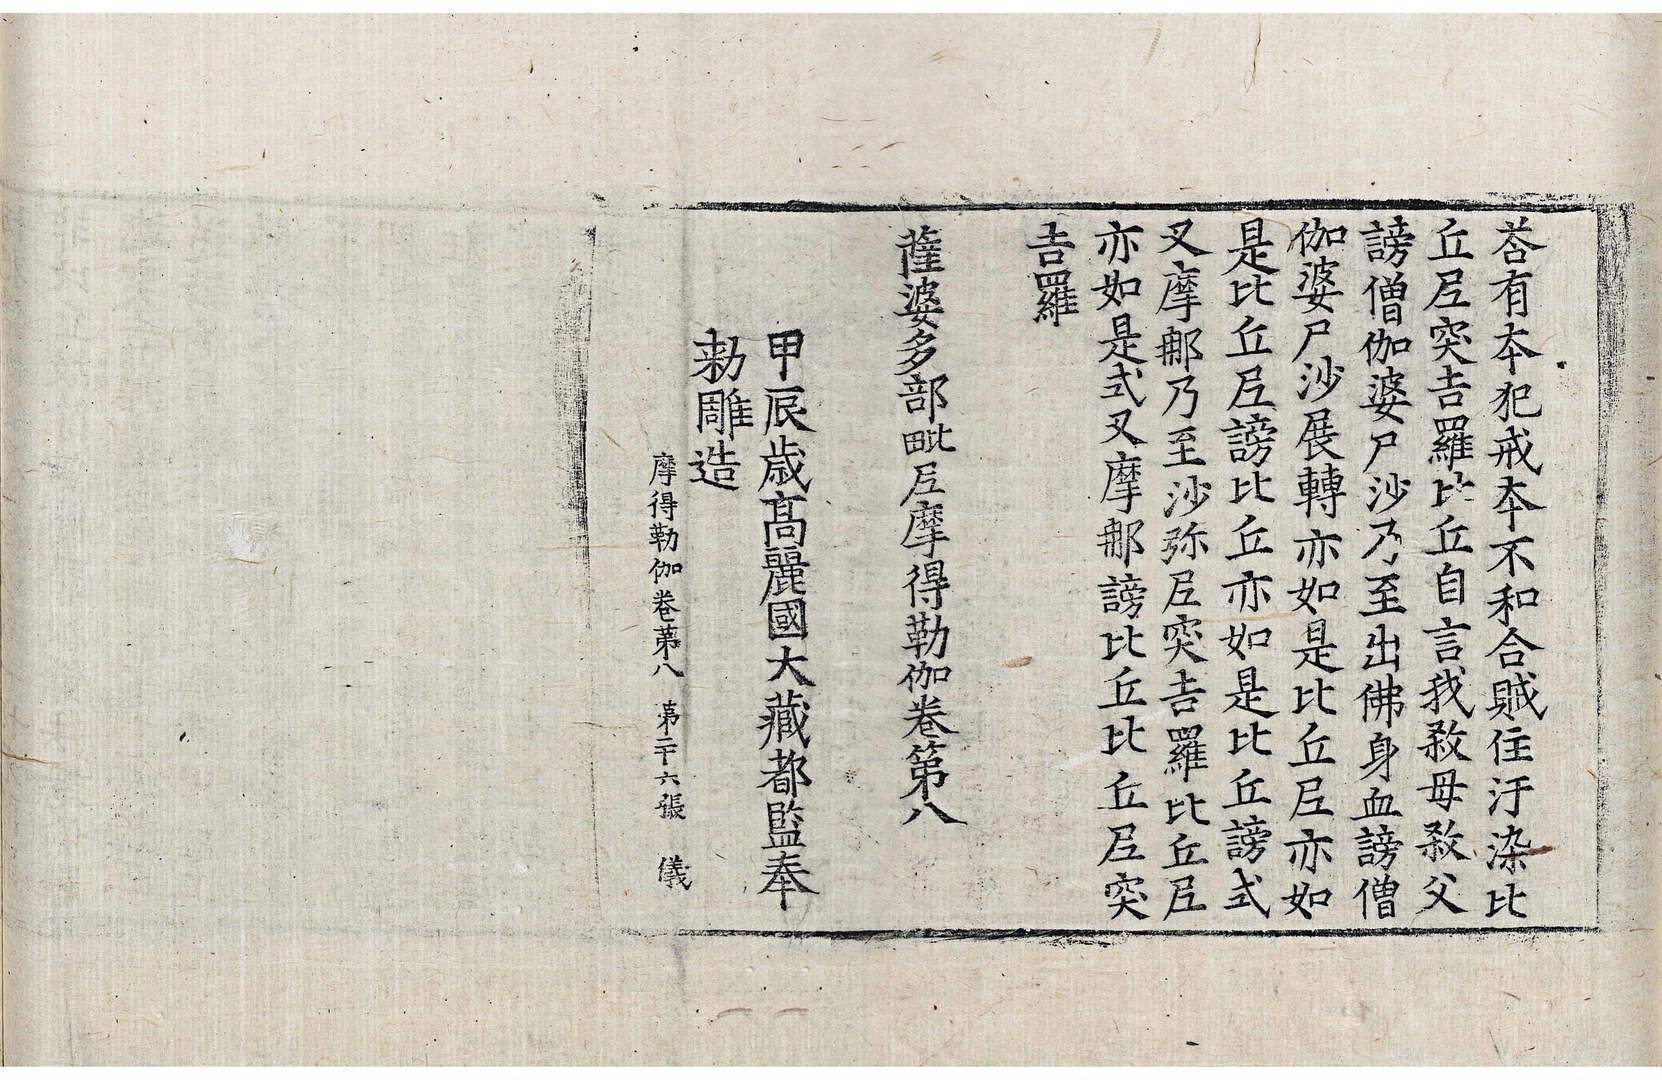 荅有夲犯戒夲不和合賊住汙染比
丘尼突吉羅比丘自言我敎母敎父
謗僧伽婆尸沙乃至出佛身血謗僧
伽婆尸沙展轉亦如是比丘尼亦如
是比丘尼謗比丘亦如是比丘謗式
叉摩那乃至沙弥尼突吉羅比丘尼
亦如是式叉摩那謗比丘比丘尼突
吉羅
薩婆多部毗尼摩得勒伽卷第八
甲辰歳高麗國大藏都監奉
勅雕造
摩得勒伽卷第八 第二十六張 儀